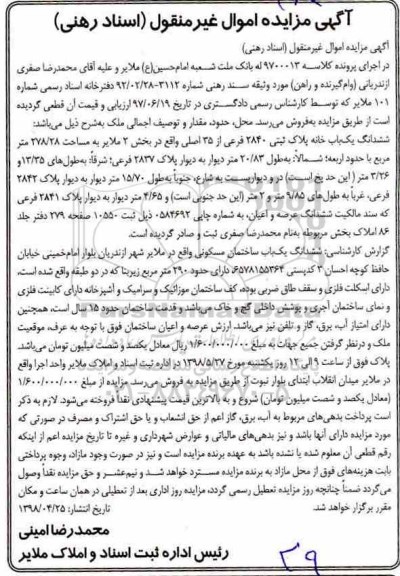 آگهی مزایده اموال غیرمنقول (اسناد رهنی)
آگهی مزایده اموال غیرمنقول (اسناد رهنی)
در اجرای پرونده کلاسه ۹۷۰۰۰۱۳ له بانک ملت شعبه امام‌حسین(ع) ملایر و علیه آقای محمدرضا صفری
ازندریانی (وام‌گیرنده و راهن) مورد وثیقه سند رهنی شماره ۳۱۱۲-۹۲/۰۲/۲۸ دفترخانه اسناد رسمی شماره
۱۰۱ ملایر که توسط کارشناس رسمی دادگستری در تاریخ ۹۷/۰۶/۱۹ ارزیابی و قیمت آن قطعی گردیده
است از طریق مزایده به‌فروش می‌رسد. محل، حدود، مقدار و توصیف اجمالی ملک به‌شرح ذیل می‌باشد:
ششدانگ یک‌باب خانه پلاک ثبتی ۲۸۴۰ فرعی از ۳۵ اصلی واقع در بخش ۲ ملایر به مساحت ۲۷۸/۲۸ متر
مربع با حدود اربعه؛ شمالاً: به‌طول ۲۰/۸۳ متر دیوار به دیوار پلاک ۲۸۳۷ فرعی؛ شرقاً: به‌طول‌های ۱۳/۳۵ و
۳/۲۶ متر ( این حد پخ است)، در و دیواریست به شارع، جنوباً به‌طول ۱۵/۷۰ متر دیوار به دیوار پلاک ۲۸۴۲
فرعی، غرباً به طول‌های ۷/۸۵ متر و ۲ متر (این حد جنوبی است) و ۴/۶۵ متر دیوار به دیوار پلاک ۲۸۴۱ فرعی
که سند مالکیت ششدانگ عرصه و اعیان، به شماره چاپی ۰۵۸۴۶۹۲ ذیل ثبت ۱۰۵۵۰ صفحه ۲۷۹ دفتر جلد
۸۶ املاک بخش مربوطه به‌نام محمدرضا صفری ثبت و صادر گردیده است.
گزارش کارشناس: ششدانگ یک‌باب ساختمان مسکونی واقع در ملایر شهر ازندریان بلوار امام‌خمینی خیابان
حافظ کوچه احسان ۳ کدپستی ۶۵۷۸۱۵۵۳۶۴، دارای حدود ۲۹۰ متر مربع زیربنا که در دو طبقه واقع شده است،
دارای اسکلت فلزی و سقف طاق ضربی بوده، کف ساختمان موزائیک و سرامیک و آشپزخانه دارای کابینت فلزی
و نمای ساختمان آجری و پوشش داخلی گچ و خاک می‌باشد و قدمت ساختمان حدود ۱۵ سال است، همچنین
دارای امتیاز آب، برق، گاز و تلفن نیز می‌باشد، ارزش عرصه و اعیان ساختمان فوق با توجه به عرف، موقعیت
ملک و درنظر گرفتن جمیع جهات به مبلغ ۱/۶۰۰/۰۰۰/۰۰۰ ریال معادل یکصد و شصت میلیون تومان می‌باشد.
پلاک فوق از ساعت ۹ الی ۱۲ روز یکشنبه مورخ ۱۳۹۸/۵/۲۷ در اداره ثبت اسناد و املاک ملایر واحد اجرا واقع
در ملایر میدان انقلاب ابتدای بلوار نبوت از طریق مزایده به فروش می‌رسد. مزایده از مبلغ ۱/۶۰۰/۰۰۰/۰۰۰
(معادل یکصد و شصت میلیون تومان) شروع و به بالاترین قیمت پیشنهادی نقداً فروخته می‌شود. لازم به ذکر
است پرداخت بدهی‌های مربوط به آب، برق، گاز اعم از حق انشعاب و یا حق اشتراک و مصرف در صورتی که
مورد مزایده دارای آنها باشد و نیز بدهی‌های مالیاتی و عوارض شهرداری و غیره تا تاریخ مزایده اعم از اینکه
رقم قطعی آن معلوم شده یا نشده باشد به عهده برنده مزایده است و نیز در صورت وجود مازاد، وجوه پرداختی
بابت هزینه‌های فوق از محل مازاد به برنده مزایده مسترد خواهد شد و نیم‌عشر و حق مزایده نقداً وصول
می‌گردد ضمناً چنانچه روز مزایده تعطیل رسمی گردد، مزایده روز اداری بعد از تعطیلی در همان ساعت و مکان
مقرر برگزار خواهد شد.
تاریخ انتشار: ۱۳۹۸/۰۴/۲۵
محمدرضا امینی
رئیس اداره ثبت اسناد و املاک ملایر
۳۹